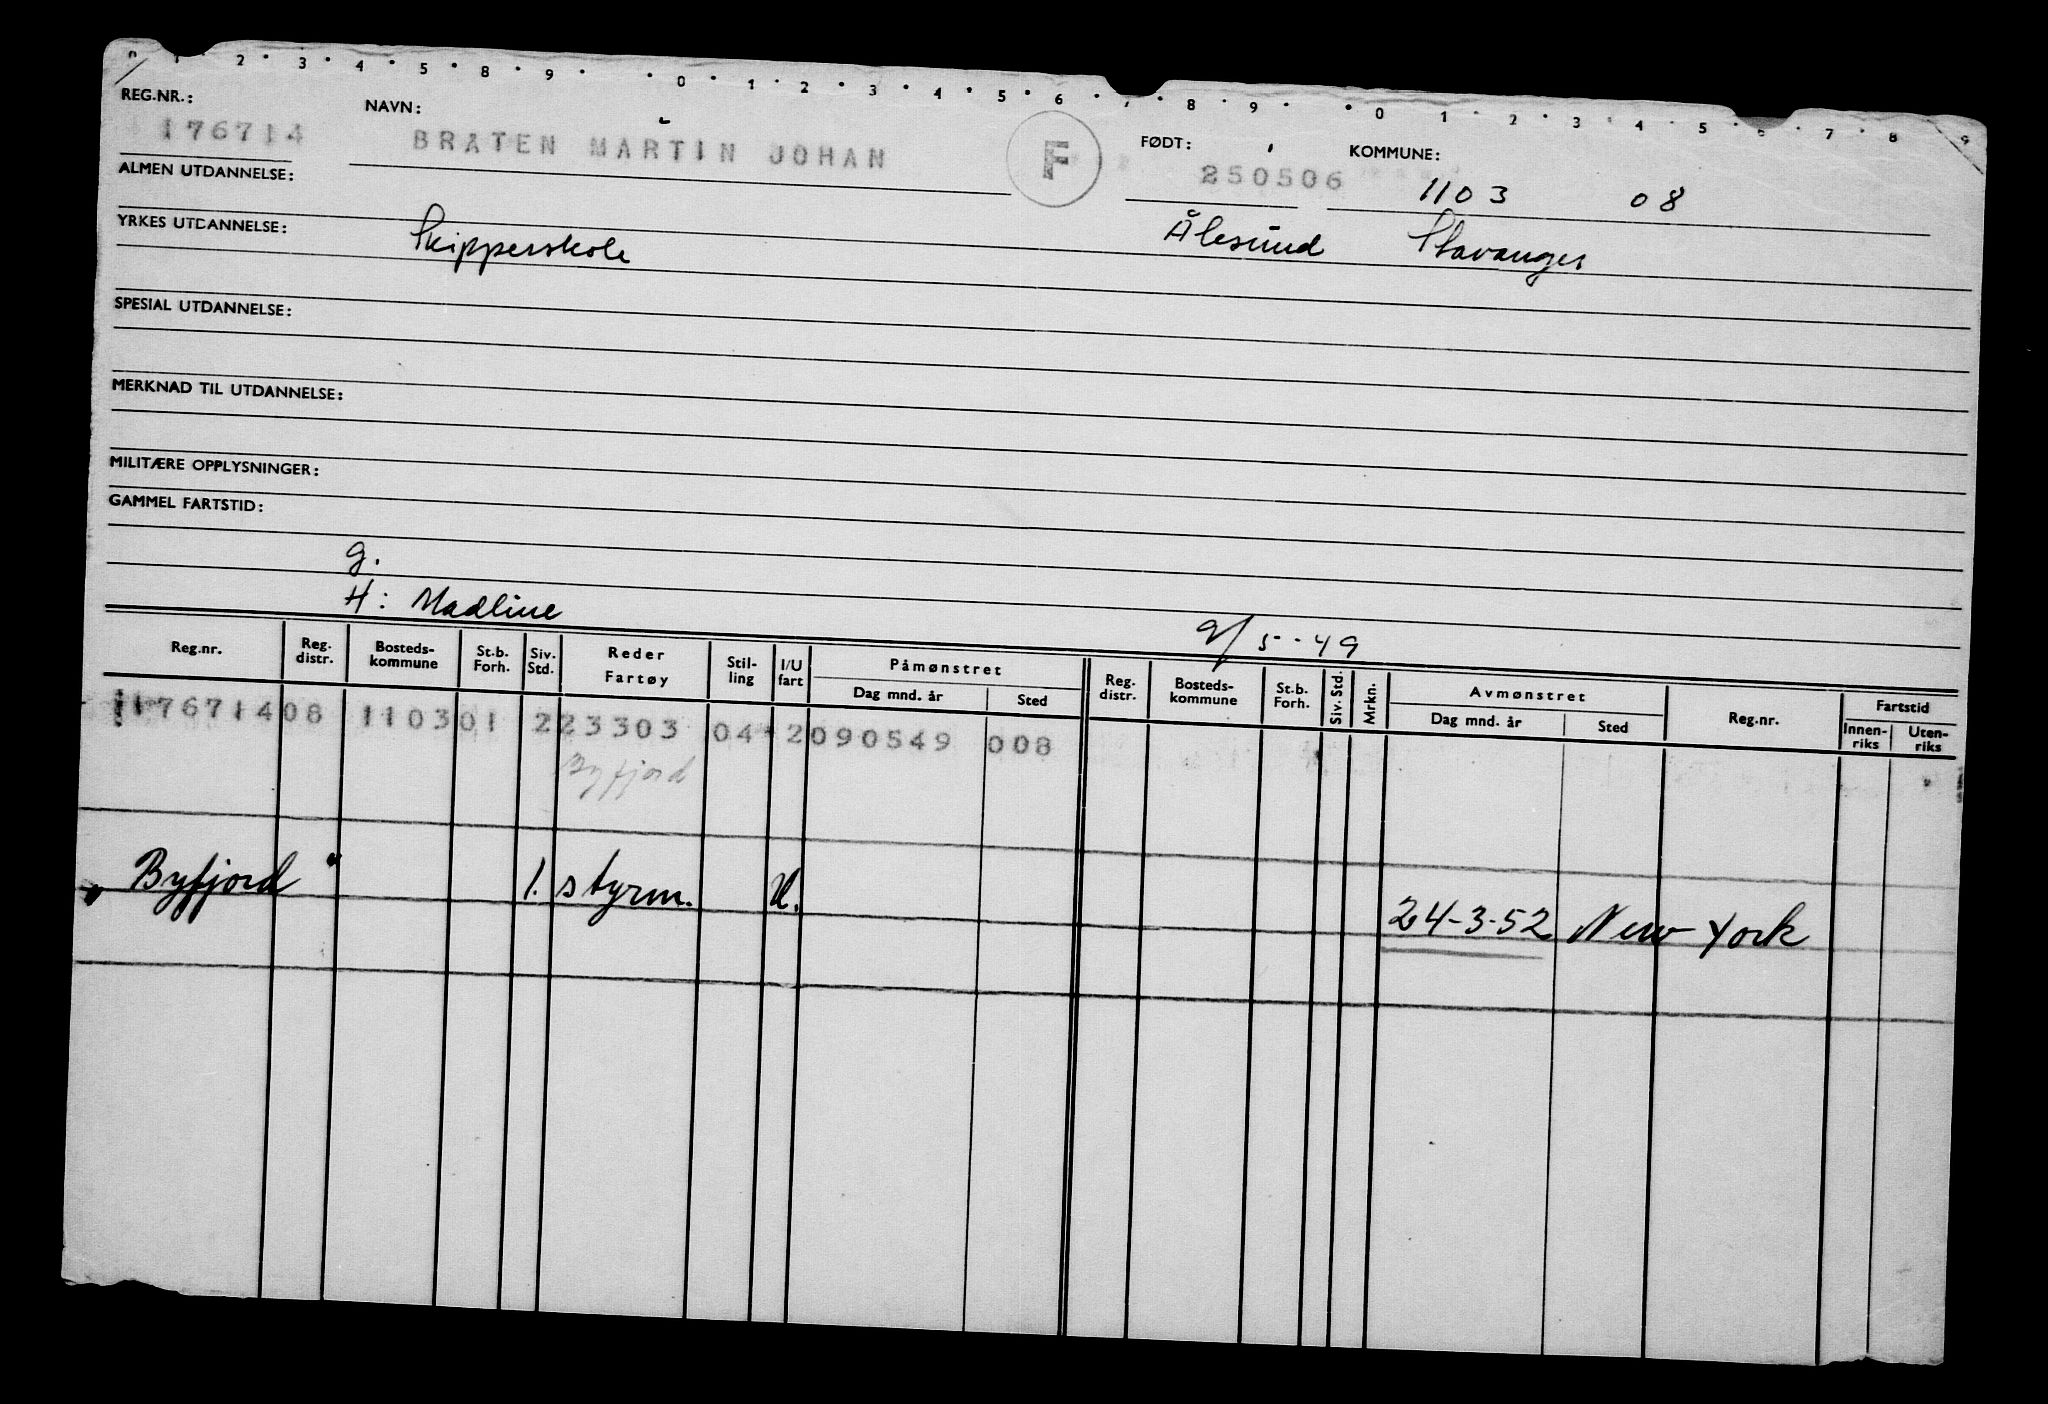 0 1 · 2 · 3 · 4 · 5 · 8 · 9 · · 0 · 1 · 2 · 3 · 4 · 5 · 6 · 7 · 8 · 9 · · 0 1 · 2 · 3 · 4 · 5 · 6 · 7 · 8 · 9
REG.NR.: NAVN: FØDT: KOMMUNE:
176714 BRATEN MARTIN JOHAN F 250506 1103 08
ALMEN UTDANNELSE:
YRKES UTDANNELSE: Skipperskole Ålesund Stavanger
SPESIAL UTDANNELSE:
MERKNAD TIL UTDANNELSE:
MILITÆRE OPPLYSNINGER:
GAMMEL FARTSTID:
g.
H: Madline 9/5-49
Reg.nr. Reg. distr. Bosteds-kommune St.b. Forh. Siv. Std. Reder Fartøy Stil-ling I/U fart Påmønstret Dag mnd. år Sted Reg. distr. Bosteds-kommune St.b. Forh. Siv. Std. Mrkn. Avmønstret Dag mnd. år Sted Reg.nr. Fartstid Innen-riks Uten-riks
176714 08 1103 01 2 23303 04 2 090549 008
Byfjord
"Byfjord" 1. styrm. U. 24-3-52 New York